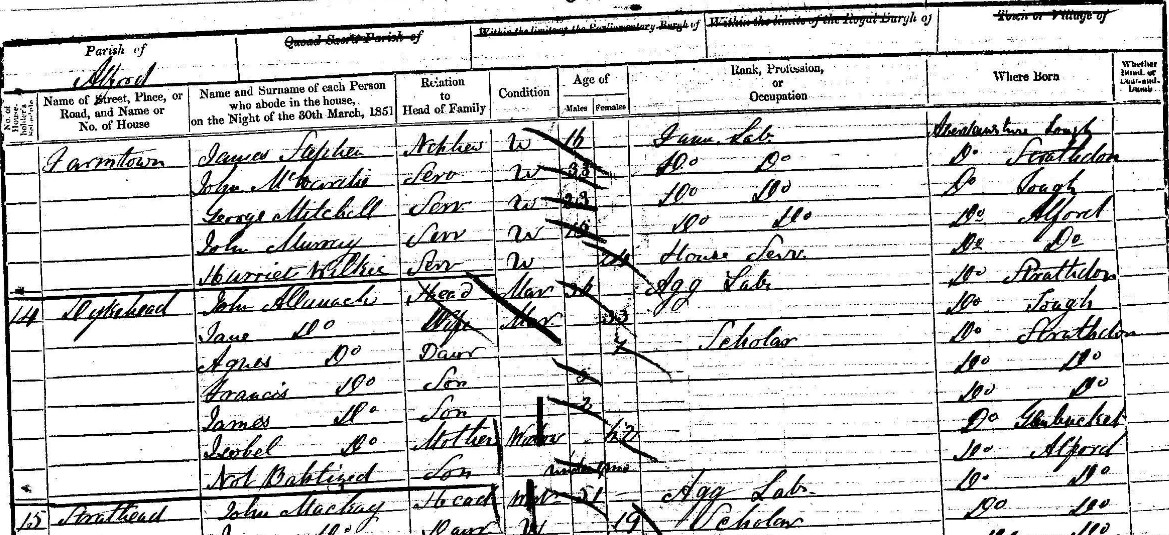 Parish of Quoad Sacra Parish of Within the limits of the Parliamentary Burgh of Within the limits of the Royal Burgh of Town or Village of
Alford
No. of Householder's Schedule Name of Street, Place, or Road, and Name or No. of House Name and Surname of each Person who abode in the house, on the Night of the 30th March, 1851 Relation to Head of Family Condition Age of Males Females Rank, Profession, or Occupation Where Born Whether Blind, or Deaf-and-Dumb
Farmtown James Stephen Nephew U 16 Farm Lab. Aberdeenshire Tough
John Serv U 33 Do Do Do Strathdon
George Mitchell Serv U 23 Do Do Do Tough
John Murray Serv U Do Do Do Alford
Harriet Wilkie Serv U House Serv. Do Do
14 Dykehead John Allanach Head Mar Agg Lab. Do Strathdon
Jane Do Wife Mar 33 Do Tough
Agnes Do Daur 7 Scholar Do Strathdon
Francis Do Son Do Do
James Do Son 2 Do Do
Isobel Do Mother Widow Do Glenbucket
Not Baptized Son Do Alford
15 Strathead John Mackay Head 51 Agg Lab. Do Do
Do Daur U 19 Scholar Do Do